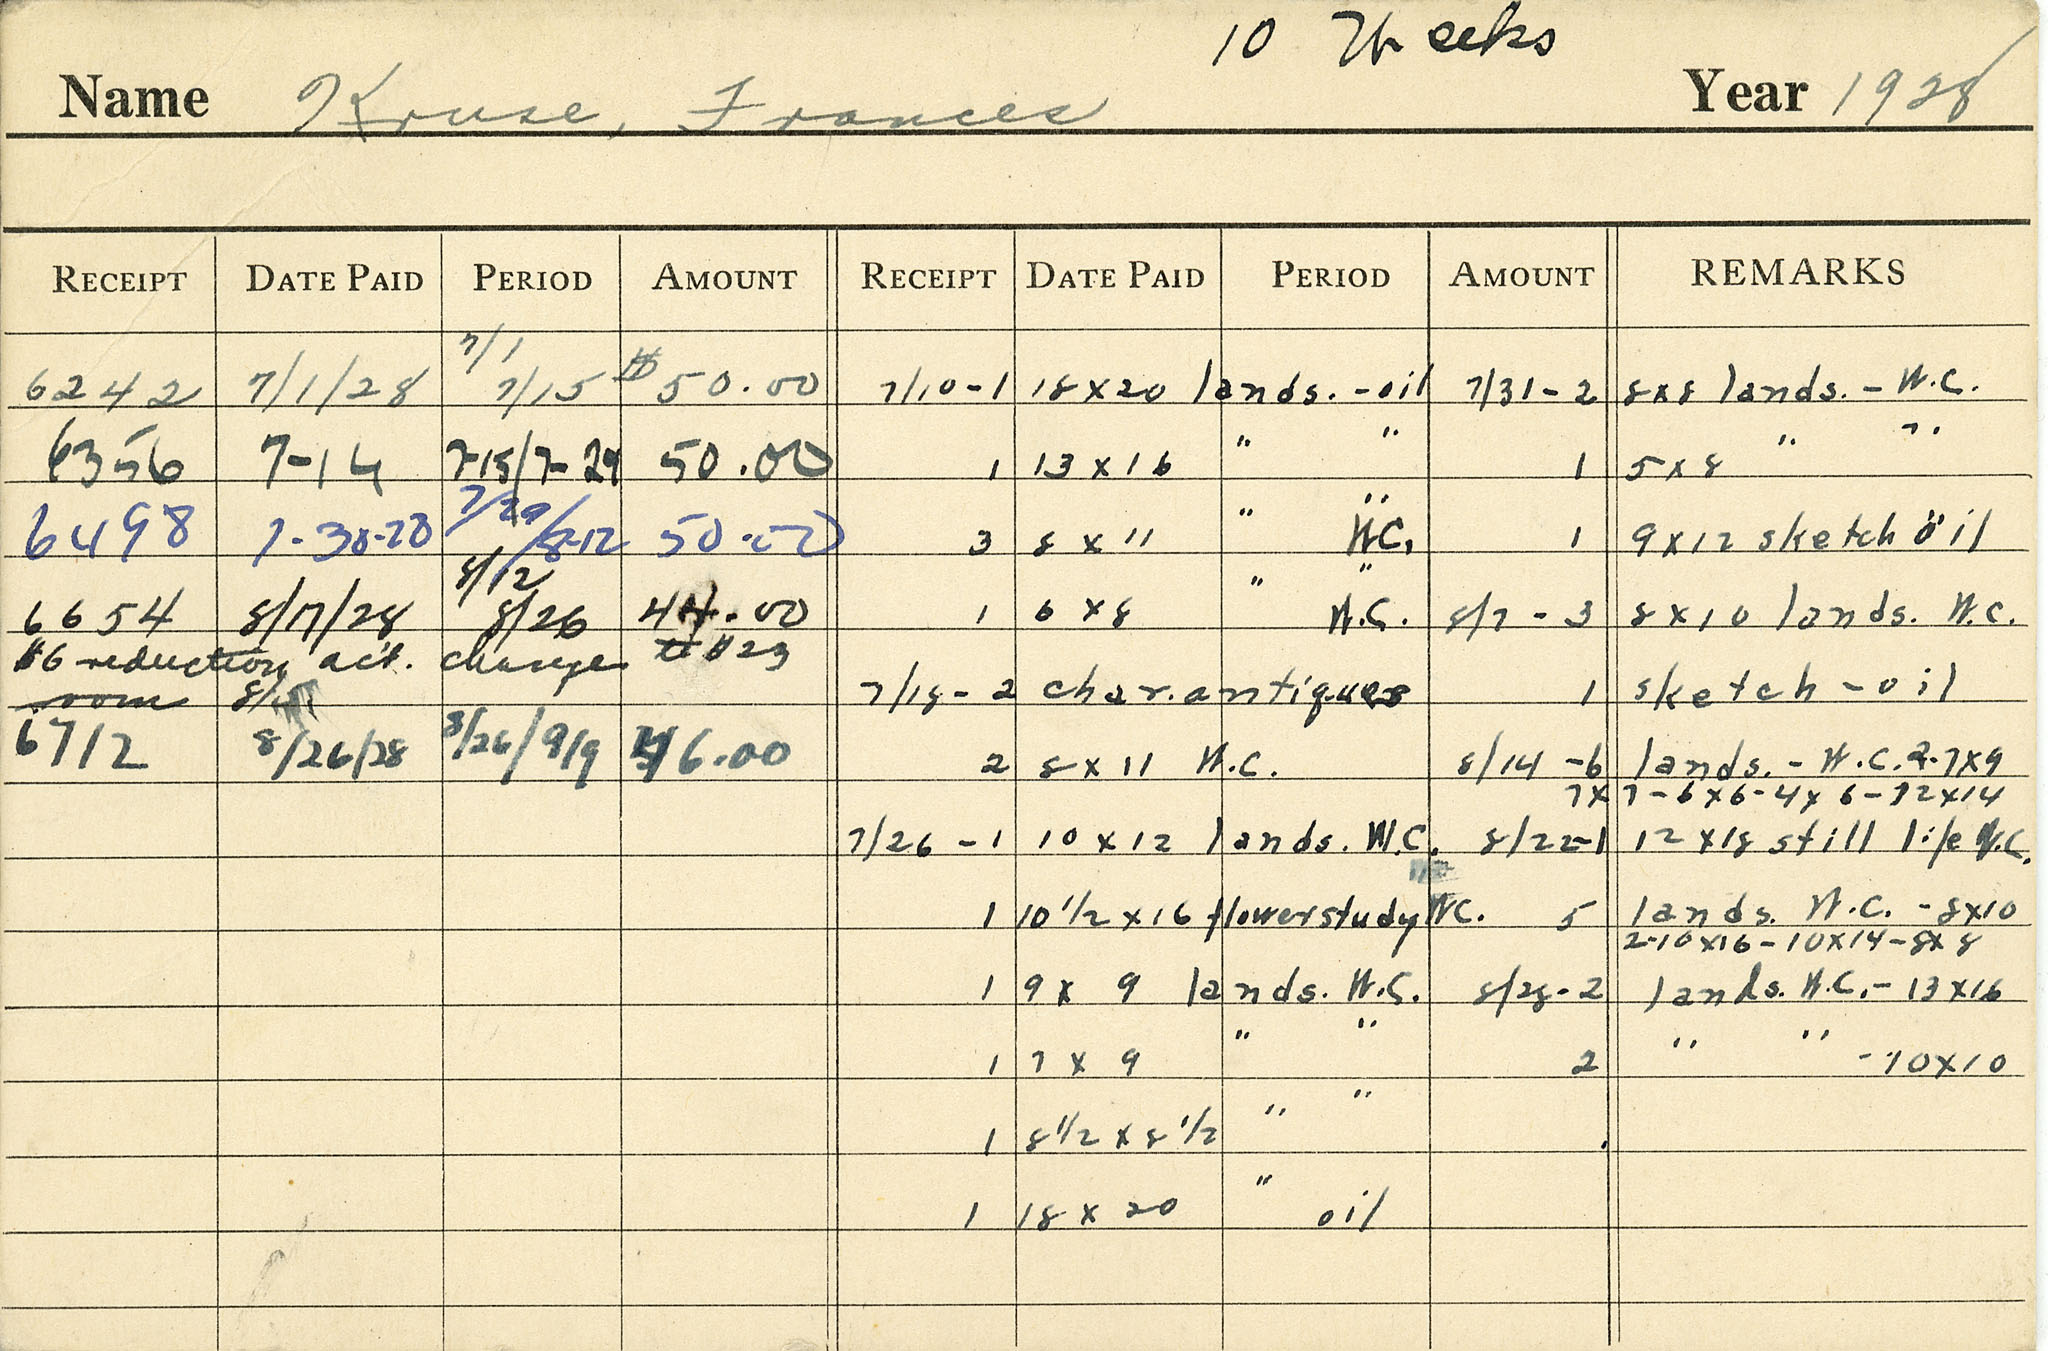 10 Weeks
Name Kruse, Frances Year 1928
RECEIPT DATE PAID PERIOD AMOUNT RECEIPT DATE PAID PERIOD AMOUNT REMARKS
7/1
6242 7/1/28 7/15 $50.00 7/10-1 18x20 lands. - oil 7/31-2 8x8 lands. - W.C.
6356 7-14 7-15/7-29 50.00 1 13x16 " " 1 5x8 " "
6498 7-30-28 7/29/8-12 50.00 3 8x11 " W.C. 1 9x12 sketch oil
8/12
6654 8/17/28 8/26 44.00 1 6x8 " W.C. 8/7-3 8x10 lands. W.C.
$6 reduction act. change to #23
room 7/18-2 char. antiques 1 sketch - oil
6712 8/26/28 8/26/9/9 46.00 2 8x11 W.C. 8/14-6 lands. - W.C. 2-7x9
7x7-6x6-4x6-12x14
7/26-1 10x12 lands. W.C. 8/22-1 12x18 still life W.C.
1 10 1/2 x 16 flower study W.C. 5 lands. W.C. - 8x10
2-10x16-10x14-8x8
1 9x9 lands. W.C. 8/28-2 lands. W.C. - 13x16
1 7x9 " " 2 " " - 10x10
1 8 1/2 x 8 1/2 " "
1 18x20 " oil